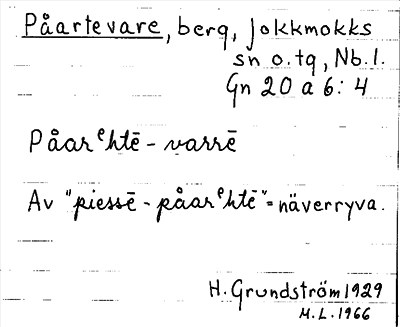 Påartevare, berg, Jokkmokks
sn o. tg, Nb. l.
Gn 20 a 6:4
Påarᵉhtē-varrē
Av "piessē-påarᵉhtē" = näverryva.
H. Grundström 1929
M.L. 1966